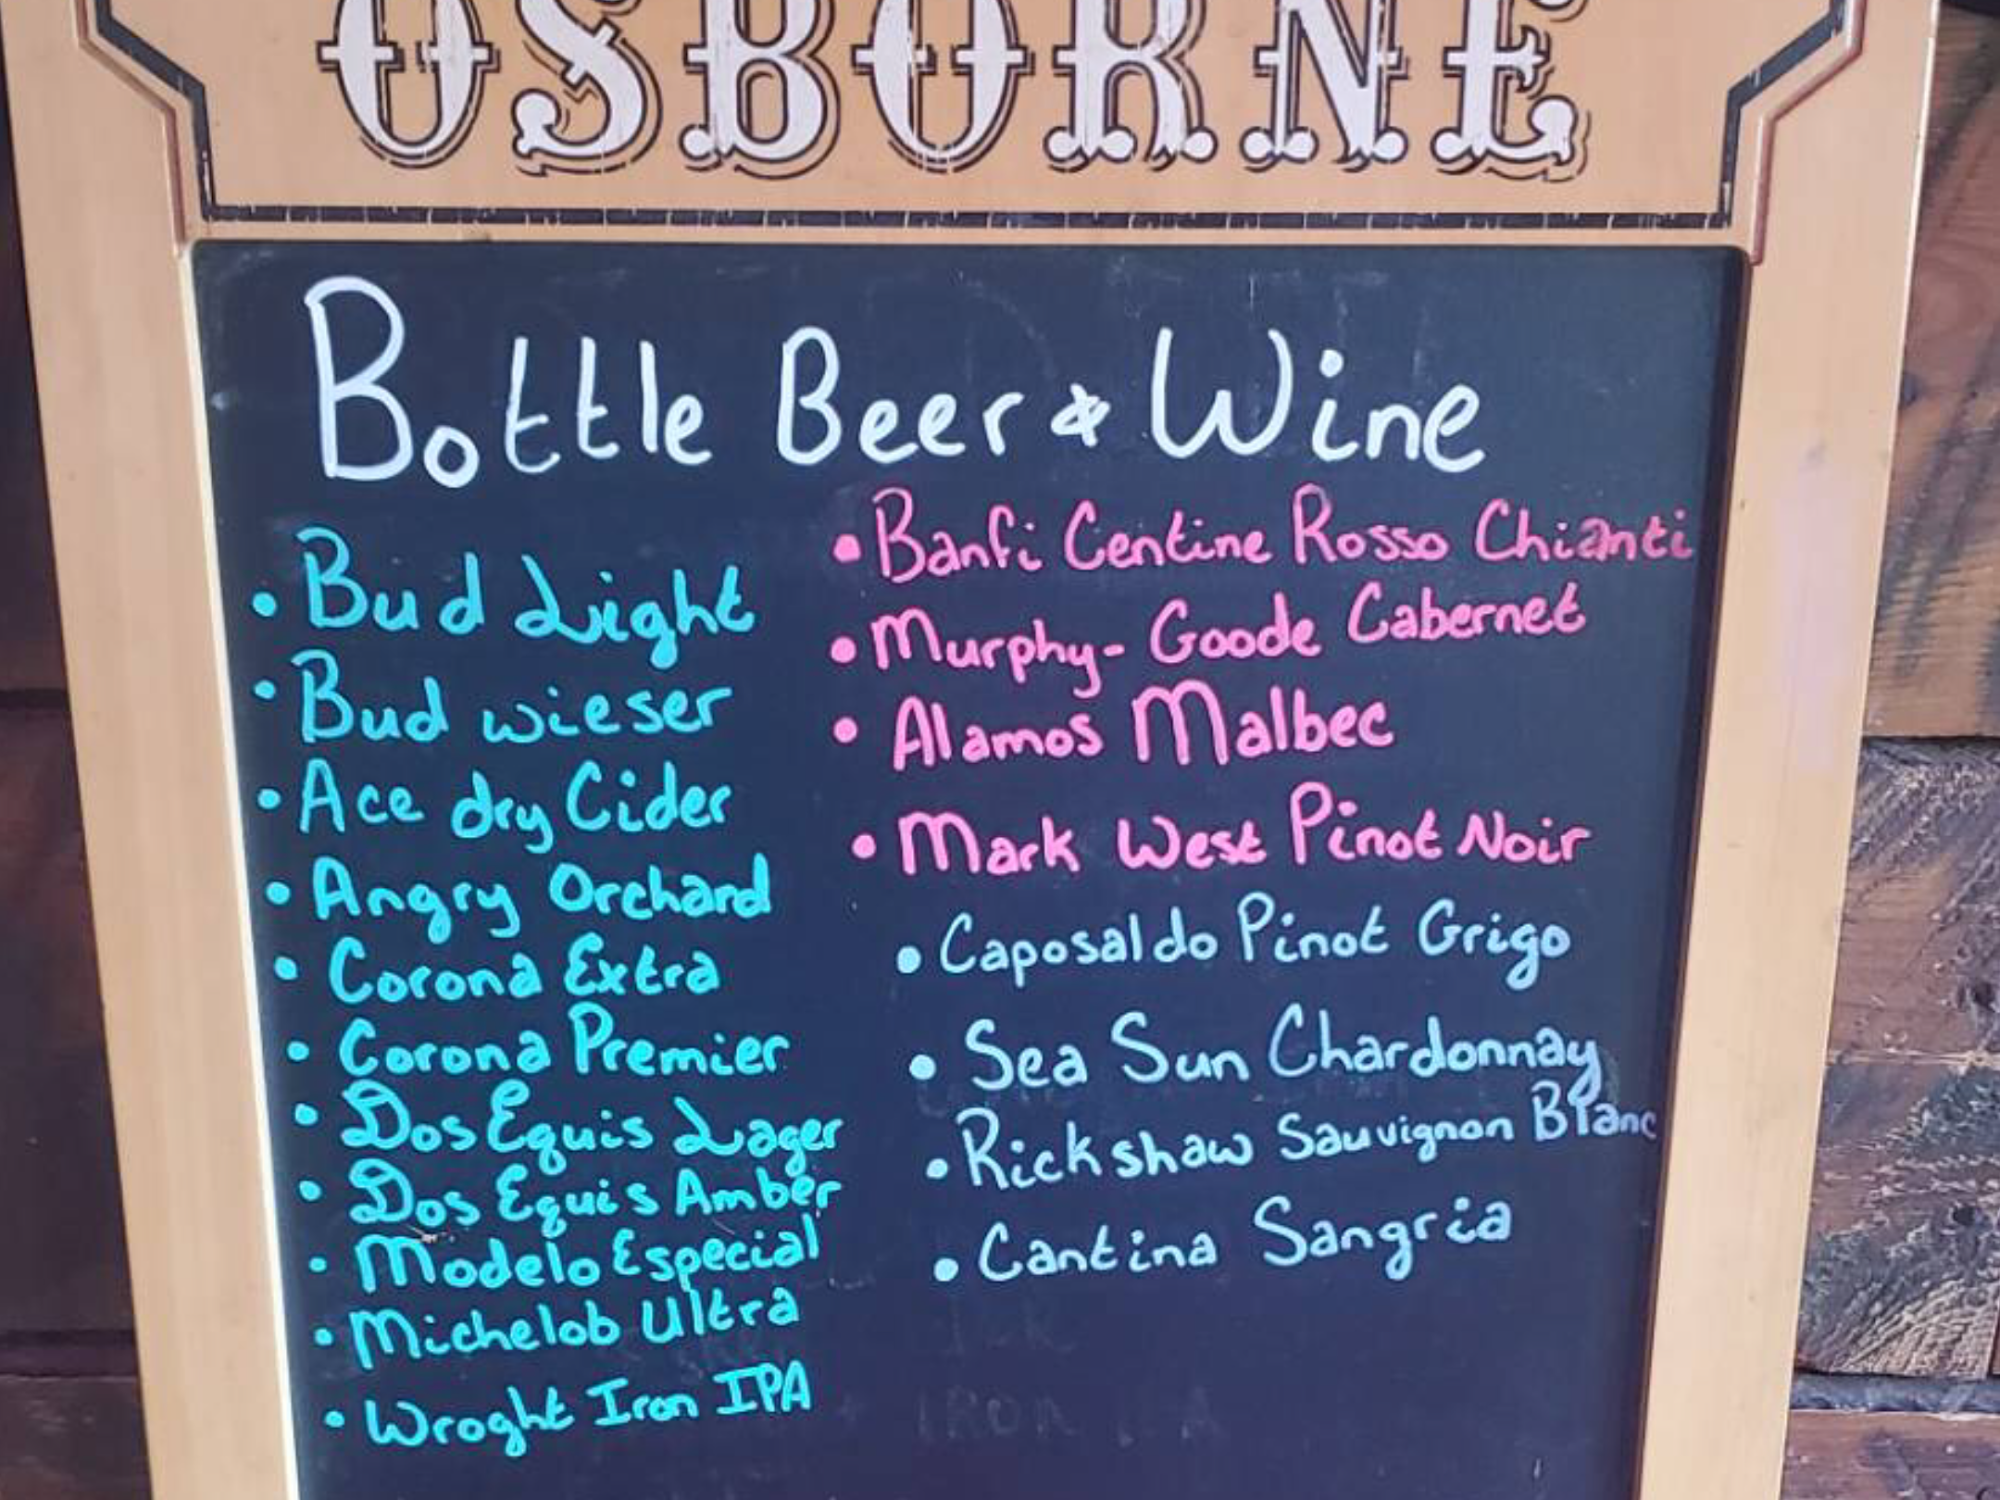 OSBORNE
Bottle Beer & Wine
• Bud Light
• Budwieser
• Ace dry Cider
• Angry Orchard
• Corona Extra
• Corona Premier
• Dos Equis Lager
• Dos Equis Amber
• Modelo Especial
• Michelob Ultra
• Wroght Iron IPA
• Banfi Centine Rosso Chianti
• Murphy-Goode Cabernet
• Alamos Malbec
• Mark West Pinot Noir
• Caposaldo Pinot Grigo
• Sea Sun Chardonnay
• Rickshaw Sauvignon Blanc
• Cantina Sangria